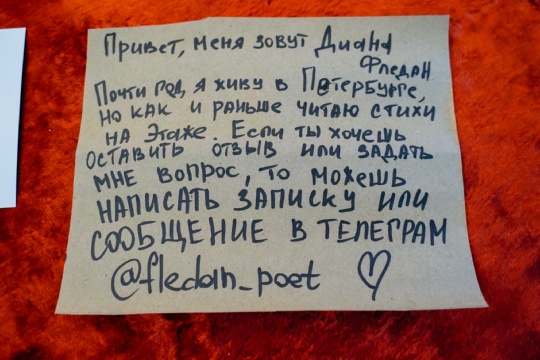 Привет, меня зовут Диана
Фледан
Почти год я живу в Петербурге,
но как и раньше читаю стихи
на Этаже. Если ты хочешь
оставить отзыв или задать
мне вопрос, то можешь
написать записку или
сообщение в телеграм
@fledan_poet ♡